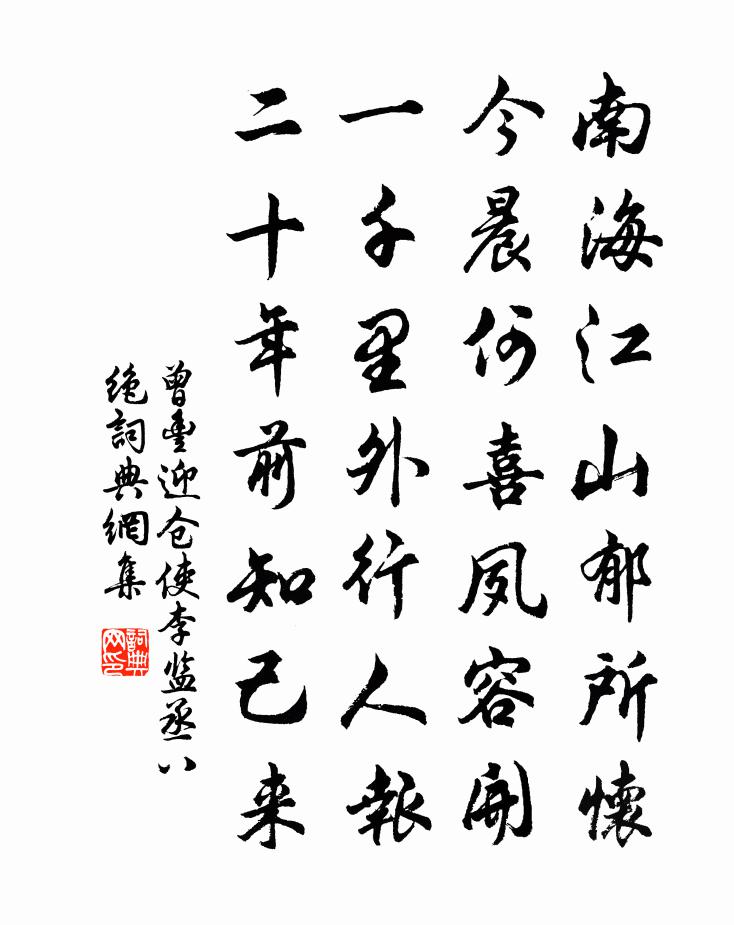 南海江山郁所懷
今晨何喜夙容開
一千里外行人報
二十年前知己来
曾豊迎仓使李监丞八
絶詞典網集
詞典网印